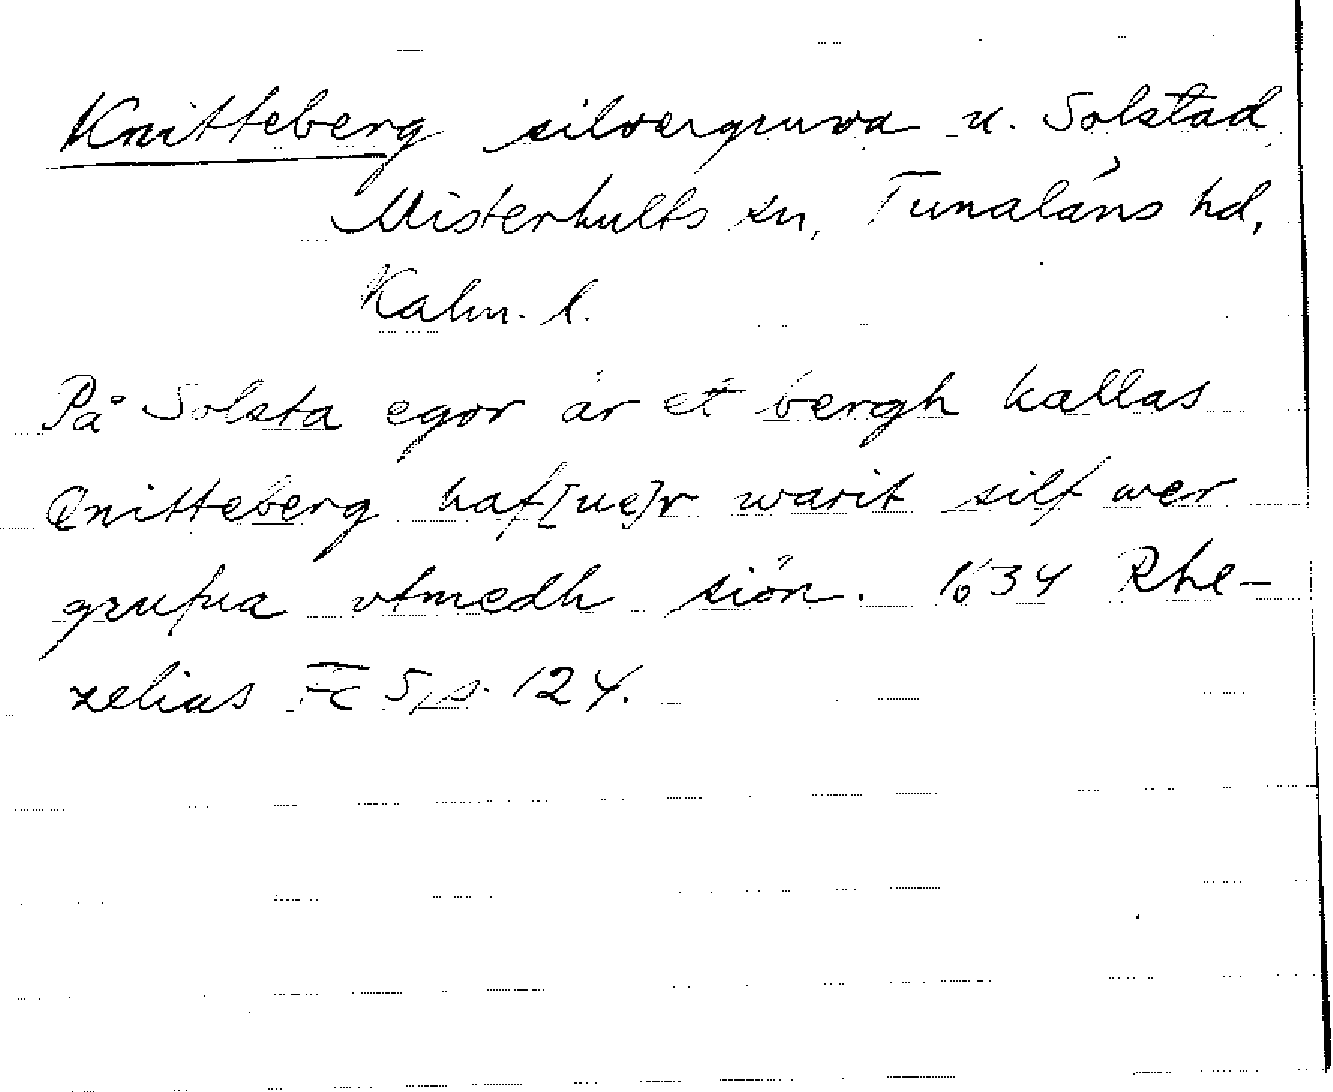 Knitteberg silvergruva u. Solstad
Misterhults sn, Tunaläns hd,
Kalm. l.
På Solsta egor är et bergh kallas
Qnitteberg haf[ue]r warit silf wer
grufua vtmedh siön. 1634 Rhe-
zelias Fc 5, s. 124.